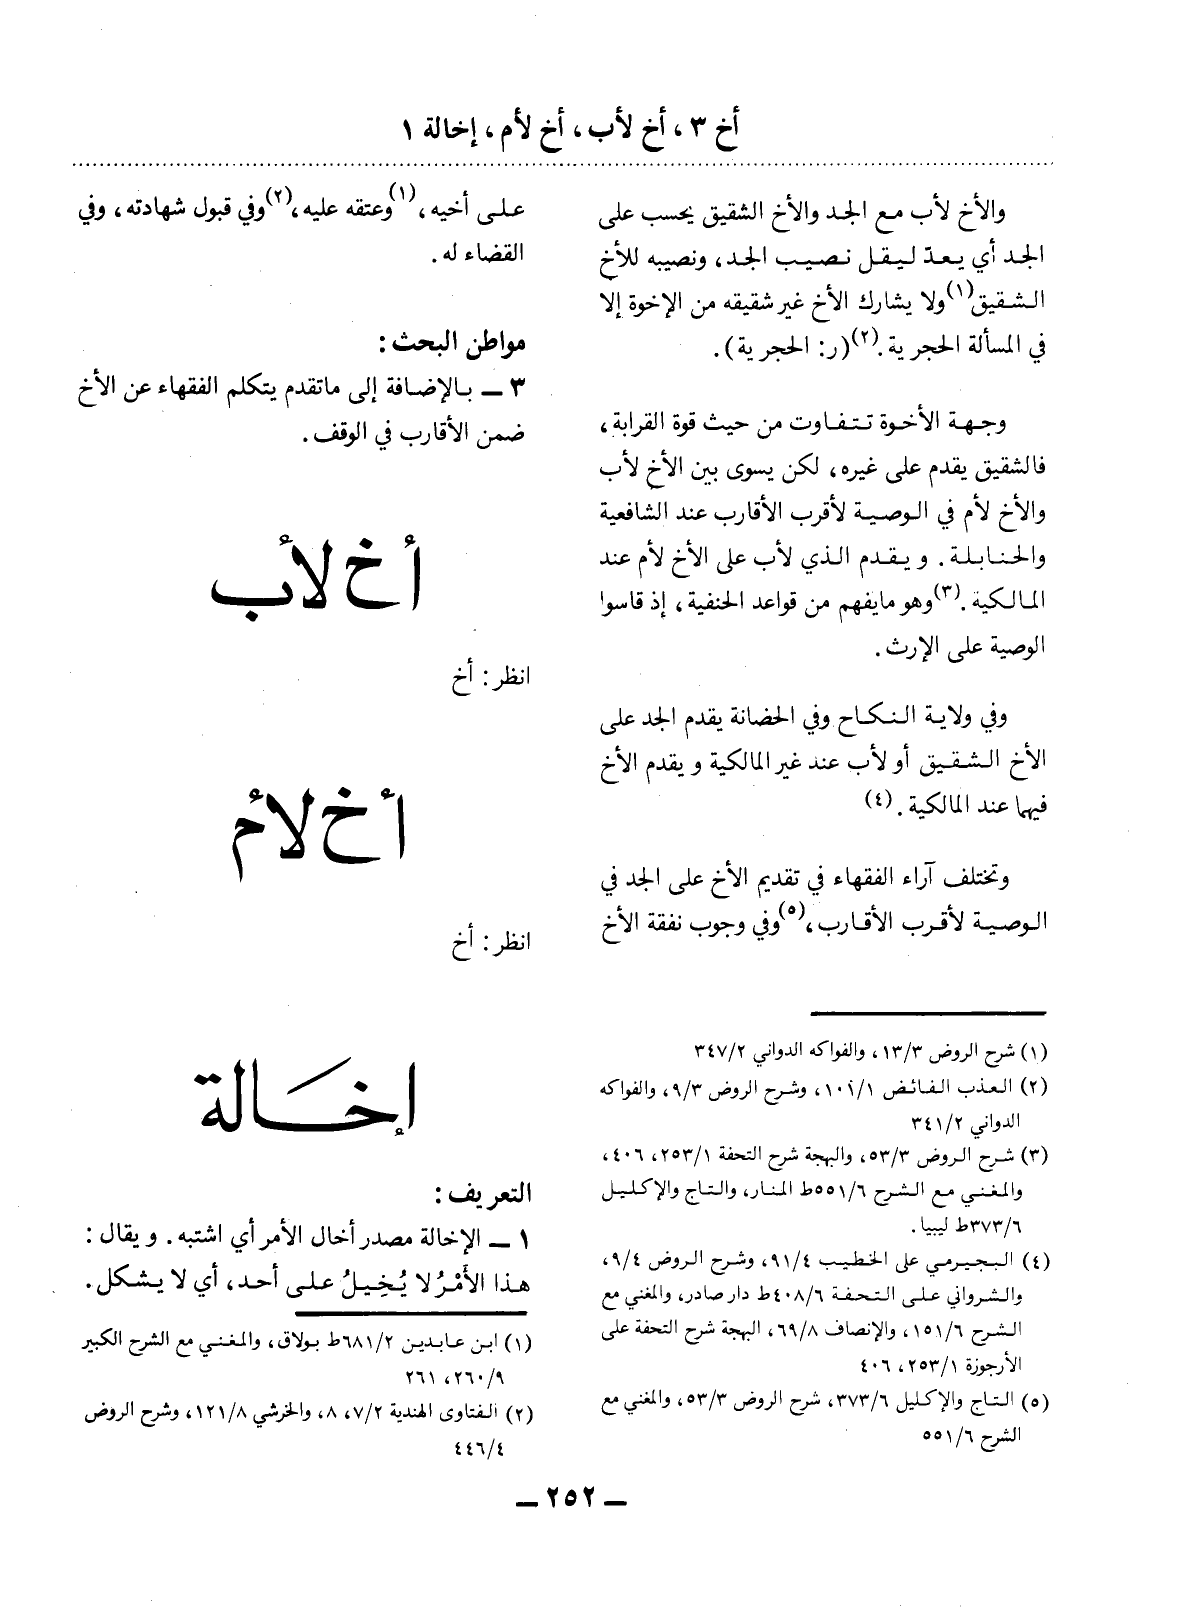 أخ ٣ ، أخ لأب ، أخ لأم ، إخالة ١
والأخ لأب مع الجد والأخ الشقيق يحسب على
الجد أي يعدّ ليقل نصيب الجد ، ونصيبه للأخ
الشقيق(١) ولا يشارك الأخ غير شقيقه من الإخوة إلا
في المسألة الحجرية .(٢) (ر: الحجرية) .
وجهة الأخوة تتفاوت من حيث قوة القرابة ،
فالشقيق يقدم على غيره ، لكن يسوى بين الأخ لأب
والأخ لأم في الوصية لأقرب الأقارب عند الشافعية
والحنابلة . ويقدم الذي لأب على الأخ لأم عند
المالكية .(٣) وهو مايفهم من قواعد الحنفية ، إذ قاسوا
الوصية على الإرث .
وفي ولاية النكاح وفي الحضانة يقدم الجد على
الأخ الشقيق أو لأب عند غير المالكية ويقدم الأخ
فيهما عند المالكية . (٤)
وتختلف آراء الفقهاء في تقديم الأخ على الجد في
الوصية لأقرب الأقارب ،(٥) وفي وجوب نفقة الأخ
(١) شرح الروض ١٣/٣ ، والفواكه الدواني ٣٤٧/٢
(٢) العذب الفائض ١٠١/١ ، وشرح الروض ٩/٣ ، والفواكه
الدواني ٣٤١/٢
(٣) شرح الروض ٥٣/٣ ، والبهجة شرح التحفة ٢٥٣/١ ، ٤٠٦ ،
والمغني مع الشرح ٥٥١/٦ط المنار ، والتاج والإكليل
٣٧٣/٦ط ليبيا .
(٤) البجيرمي على الخطيب ٩١/٤ ، وشرح الروض ٩/٤ ،
والشرواني على التحفة ٤٠٨/٦ط دار صادر ، والمغني مع
الشرح ١٥١/٦ ، والإنصاف ٦٩/٨ ، البهجة شرح التحفة على
الأرجوزة ٢٥٣/١ ، ٤٠٦
(٥) التاج والإكليل ٣٧٣/٦ ، شرح الروض ٥٣/٣ ، والمغني مع
الشرح ٥٥١/٦
على أخيه ،(١) وعتقه عليه ،(٢) وفي قبول شهادته ، وفي
القضاء له .
مواطن البحث :
٣ ــ بالإضافة إلى ماتقدم يتكلم الفقهاء عن الأخ
ضمن الأقارب في الوقف .
أخ لأب
انظر : أخ
أخ لأم
انظر : أخ
إخالة
التعريف :
١ ــ الإخالة مصدر أخال الأمر أي اشتبه . ويقال :
هذا الأَمْرُ لا يُخِيلُ على أحد ، أي لا يشكل .
(١) ابن عابدين ٦٨١/٢ط بولاق ، والمغني مع الشرح الكبير
٢٦٠/٩ ، ٢٦١
(٢) الفتاوى الهندية ٧/٢ ، ٨ ، والخرشي ١٢١/٨ ، وشرح الروض
٤٤٦/٤
ــ ٢٥٢ ــ